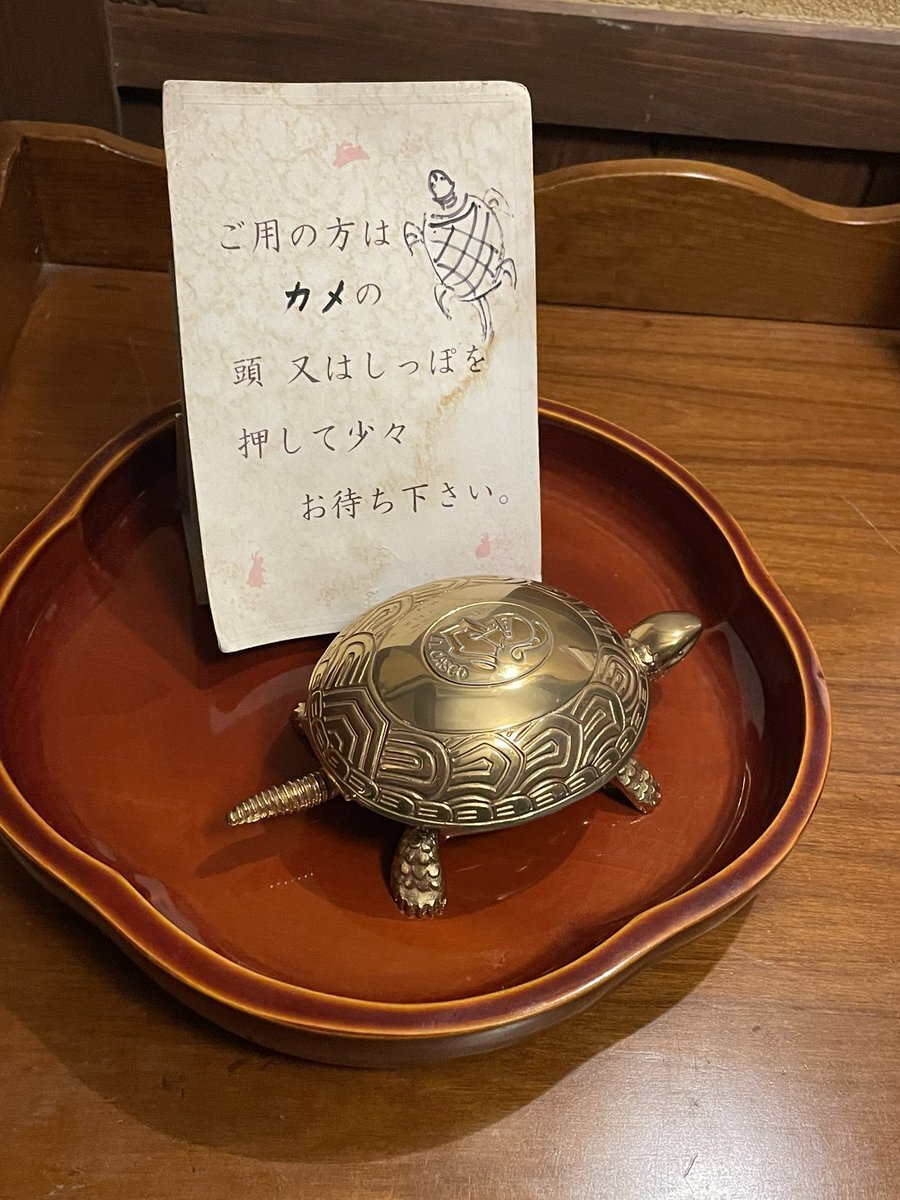 ご用の方は
カメの
頭 又はしっぽを
押して少々
お待ち下さい。
EL CASCO